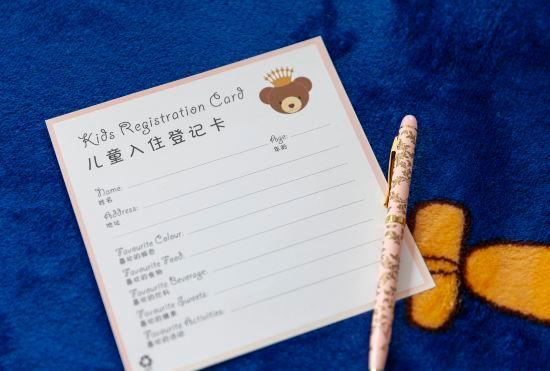 Kids Registration Card
儿童入住登记卡
Name: Age:
姓名 年龄
Address:
地址
Favourite Colour:
喜欢的颜色
Favourite Food:
喜欢的食物
Favourite Beverage:
喜欢的饮料
Favourite Sweets:
喜欢的糖果
Favourite Activities:
喜欢的活动